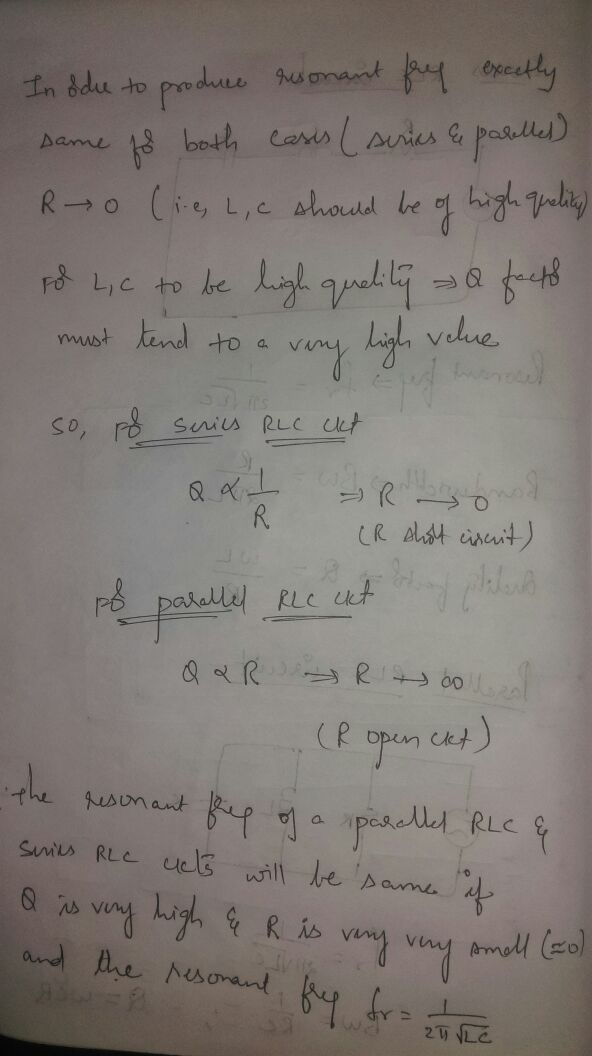 In order to produce resonant freq exactly
same for both cases ( series & parallel)
R → 0 ( i.e, L, C should be of high quality)
For L, C to be high quality ⇒ Q factor
must tend to a very high value
SO, For series RLC ckt
Q ∝ 1/R ⇒ R → 0
(R short circuit)
For parallel RLC ckt
Q ∝ R ⇒ R → ∞
(R open ckt)
the resonant freq of a parallel RLC &
Series RLC ckts will be same if
Q is very high & R is very very small (≃0)
and the resonant freq fr = 1/2π√LC